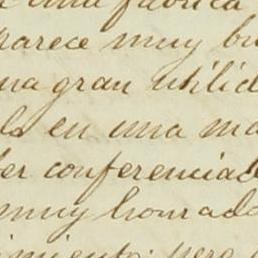 una fabrica
parece muy bu
na gran utilid
la en una ma
er conferencias
muy honrado
imiento; pero